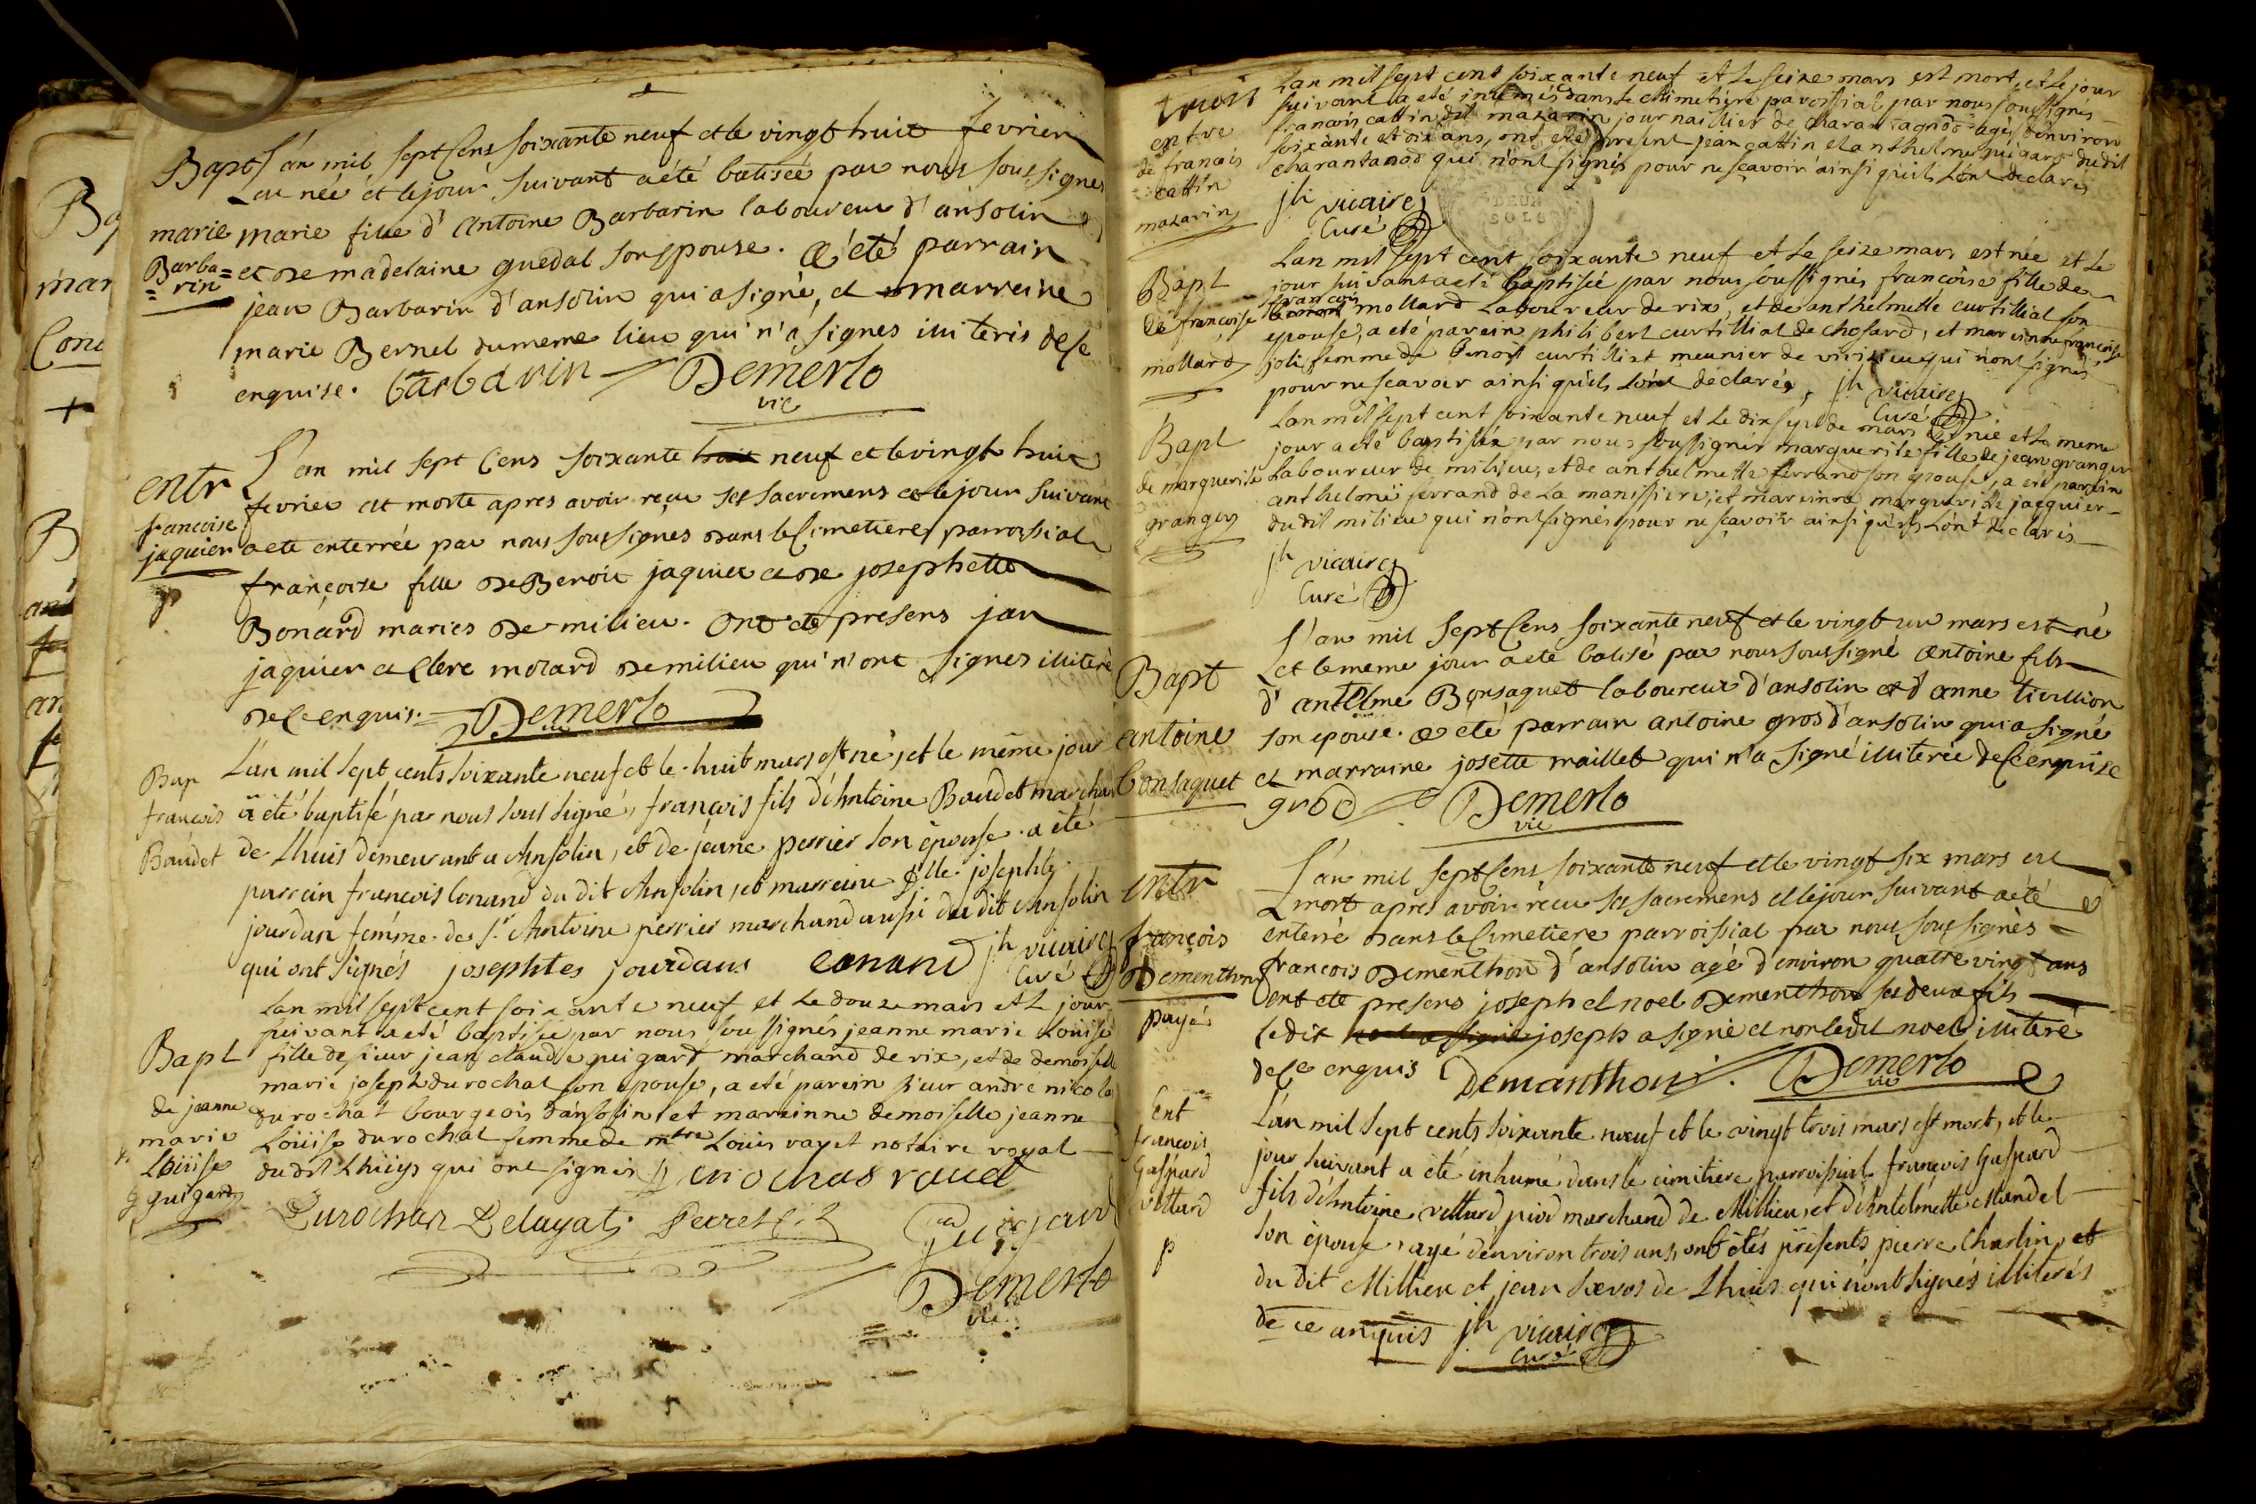 Bapt L'an mil sept Cens soixante neuf et le vingt huit fevrier
est née et le jour suivant a été batisée par nous soussignes
marie marie fille d'Antoine Barbarin laboureur d'ansolin
Barba= et de madelaine guedal son epouse. A été parrain
=rin
jean Barbarin d'ansolin qui a signé, et marreine
marie Bernel du meme lieu qui n'a signes illiteris de ce
enquise. barbarin Demerlo
vic
entr L'an mil sept Cens soixante huit neuf et le vingt huit
fevrier est morte apres avoir reçu ses sacremens et le jour suivant
francoise
jaquier a ete enterrée par nous soussignes dans le Cimetiere parroissial
françoise fille de Benoit jaquier et de josephette
Bonard maries de milieu. Ont ete presens jan
jaquier et Clere molard de milieu qui n'ont signes illiteré
de ce enquis. Demerlo
vic
Bap L'an mil sept cents soixante neuf et le huit mars est né, et le même jour
francois a été baptisé par nous sous signé, françois fils d'Antoine Baudet marchan
Baudet de Lhuis demeurant a Ansolin, et de jeane perrier son epouse. a été
parrain francois Conand du dit Ansolin, et marreine Dlle josephte
jourdan femme de Sr. Antoine perrier marchand aussi du dit Ansolin
qui ont signés josephtes jourdans conand jh vicaire
Curé
Lan mil sept cent soixante neuf et le douze mars et le jour
suivant a eté baptisee par nous soussignés jeanne marie Loüise
Bapt fille de sieur jean claude guigard marchand de rix, et de demoiselle
marie joseph durochat son epouse, a eté parein sieur andre nicolas
de jeanne durochat bourgeois d'ansolin et mareinne demoiselle jeanne
marie Loüise durochat femme de mtre Loüis rayet notaire royal
Loüise dudit Lhüys qui ont signés Durochas rayet
guigard
Durochat Delayat Perret Guigard
Demerlo
vic
Lan mil sept cent soixante neuf et le seize mars est mort, et le jour
entre suivant a eté inumés dans le cimetiere paroissial par nous soussignés
de francois francois cattin dit mazarin journaillier de charantanod agés denviron
cattin soixante et dix ans, ont eté present jean cattin et anthelme guigard dudit
mazarin charantanod qui n'ont signés pour ne sçavoir ainsi quils l'ont declarés
jh vicaire
Curé
DEUX
SOLS
Lan mil sept cent soixante neuf et le seize mars est née et le
Bapt jour suivant a eté baptisée par nous soussignés francoise fille de
francois
de françoise mollard Laboureur de rix, et de anthelmette curtilliat son
epouse, a eté parein philibert curtilliat de chosard, et mareinne francoise
mollard joli femme de benoit curtilliat meunier de qui n'ont signés
pour ne sçavoir ainsi quils l'ont declarés, jh vicaire
Curé
Lan mil sept cent soixante neuf et le dix sept de mars est née et le meme
Bapt jour a eté baptisée par nous soussignés marguerite fille de jean granger
de marguerite Laboureur de milieu, et de anthelmette ferrand son epouse, a eté parein
granger anthelme ferrand de la manissiere, et mareinne marguerite jacquier
dudit milieu qui n'ont signés pour ne sçavoir ainsi quils l'ont declarés
jh vicaire
Curé
L'an mil sept Cens soixante neuf et le vingt un mars est né
Bapt et le meme jour a ete batisé par nous soussigné antoine fils
d'antelme Bonsaquet laboureur d'ansolin et d'anne tivillion
antoine son epouse. a eté parrain antoine gros d'ansolin qui a signé
Bonsaquet et marraine josette maillet qui n'a signé illiterée de ce enquise
grod Demerlo
vic
L'an mil sept Cens soixante neuf et le vingt six mars est
entr mort apres avoir reçu ses sacremens et le jour suivant a été
françois enterré dans le Cimetiere parroissial par nous soussignès
Dementhon francois Dementhon d'ansolin agé d'environ quatre vingt ans
ont ete presens joseph et noel Dementhon ses deux fils
payé
ledit noel a signé joseph a signé et non ledit noel illiteré
de ce enquis Demanthon Demerlo
vic
Ent L'an mil sept cents soixante neuf et le vingt trois mars est mort, et le
francois jour suivant a été inhumé dans le cimitiere parroissial francois Gaspard
Gaspard fils d'Antoine vettard piod marchand de Millieu, et d'Antelmette Mandel
vettard son épouse, agé d'environ trois ans, ont étés présents pierre Charlin, et
p du dit Millieu et jean servos de Lhuis qui n'ont signés illiterés
de ce anquis jh vicaire
Curé